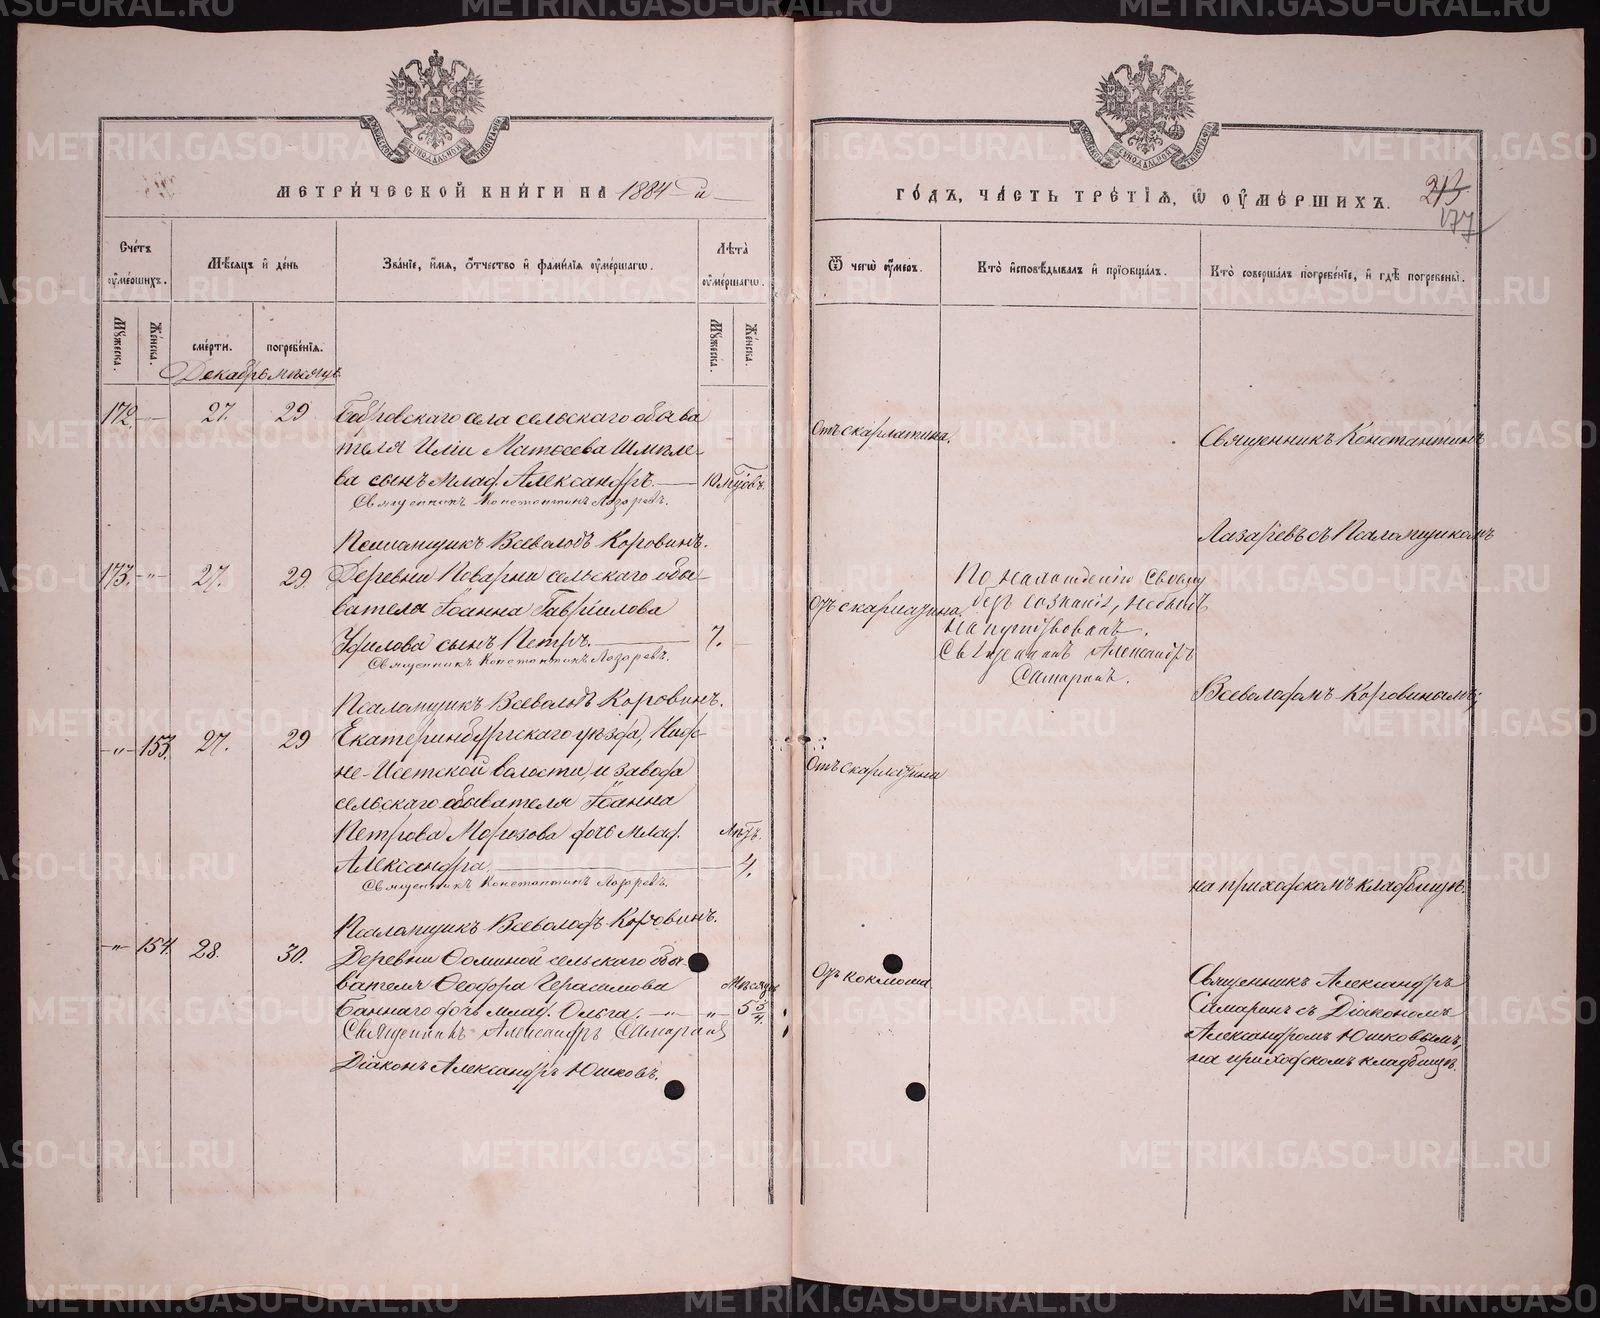 МЕТРИЧЕСКОЙ КНИГИ НА 1884 й
Счетъ умершихъ.
Мѣсяцъ и день
Званіе, имя, отчество и фамилія умершагѡ.
Лѣта умершагѡ.
Мужеска.
Женска.
смерти.
погребенія.
Мужеска.
Женска.
Декабрь мѣсяцъ
172. -"- 27. 29 Бобровскаго села сельскаго обыва
теля Иліи Матѳеева Шмыле-
ва сынъ млад. Александръ. — 10 мѣс.
Священникъ Константинъ Лазаревъ.
Псаломщикъ Всеволодъ Коровинъ.
173. -"- 27. 29 Деревни Поварни сельскаго обы-
вателя Іоанна Гавріилова
сынъ Петръ. — 7.
Священникъ Константинъ Лазаревъ.
Псаломщикъ Всеволодъ Коровинъ.
-"- 153. 27. 29 Екатеринбургскаго уѣзда, Ниж-
не-Исетской волости, и завода
сельскаго обывателя Іоанна
Петрова Морозова дочь млад. лѣтъ.
Александра. — 4.
Священникъ Константинъ Лазаревъ.
Псаломщикъ Всеволодъ Коровинъ.
-"- 154. 28. 30. Деревни Ѳоминой сельскаго обы-
вателя Ѳеодора Герасимова Мѣсяцъ
Баннаго дочь млад. Ольга. -"- -"- 5 3/4.
Священникъ Александръ Самаринъ
Діаконъ Александръ Юшковъ.
ГОДЪ, ЧАСТЬ ТРЕТІЯ, Ѡ УМЕРШИХЪ.
213
177
Ѿ чегѡ умеръ.
Кто исповѣдывалъ и пріобщалъ.
Кто совершалъ погребеніе, и гдѣ погребены.
Отъ скарлатина.
Священникъ Константинъ
Лазаревъ съ Псаломщикомъ
Отъ скарлатина.
По нахожденіи своему
безъ сознанія, небылъ
напутствованъ.
Священникъ Александръ
Самаринъ.
Всеволодомъ Коровинымъ,
Отъ скарлатина
на приходскомъ кладбищѣ.
Отъ коклюша
Священникъ Александръ
Самаринъ съ Діакономъ
Александромъ Юшковымъ,
на приходскомъ кладбищѣ.
METRIKI.GASO-URAL.RU